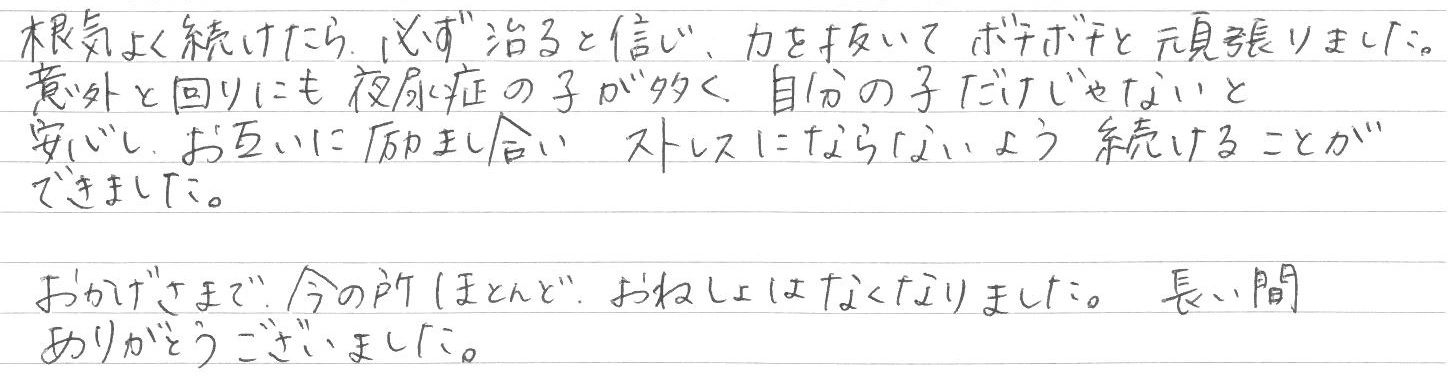 根気よく続けたら、必ず治ると信じ、力を抜いて ボチボチと 頑張りました。
意外と回りにも 夜尿症の子が多く、自分の子だけじゃないと
安心し、お互いに励まし合い ストレスにならないよう 続けることが
できました。
おかげさまで、今の所ほとんど、おねしょはなくなりました。 長い間
ありがとうございました。